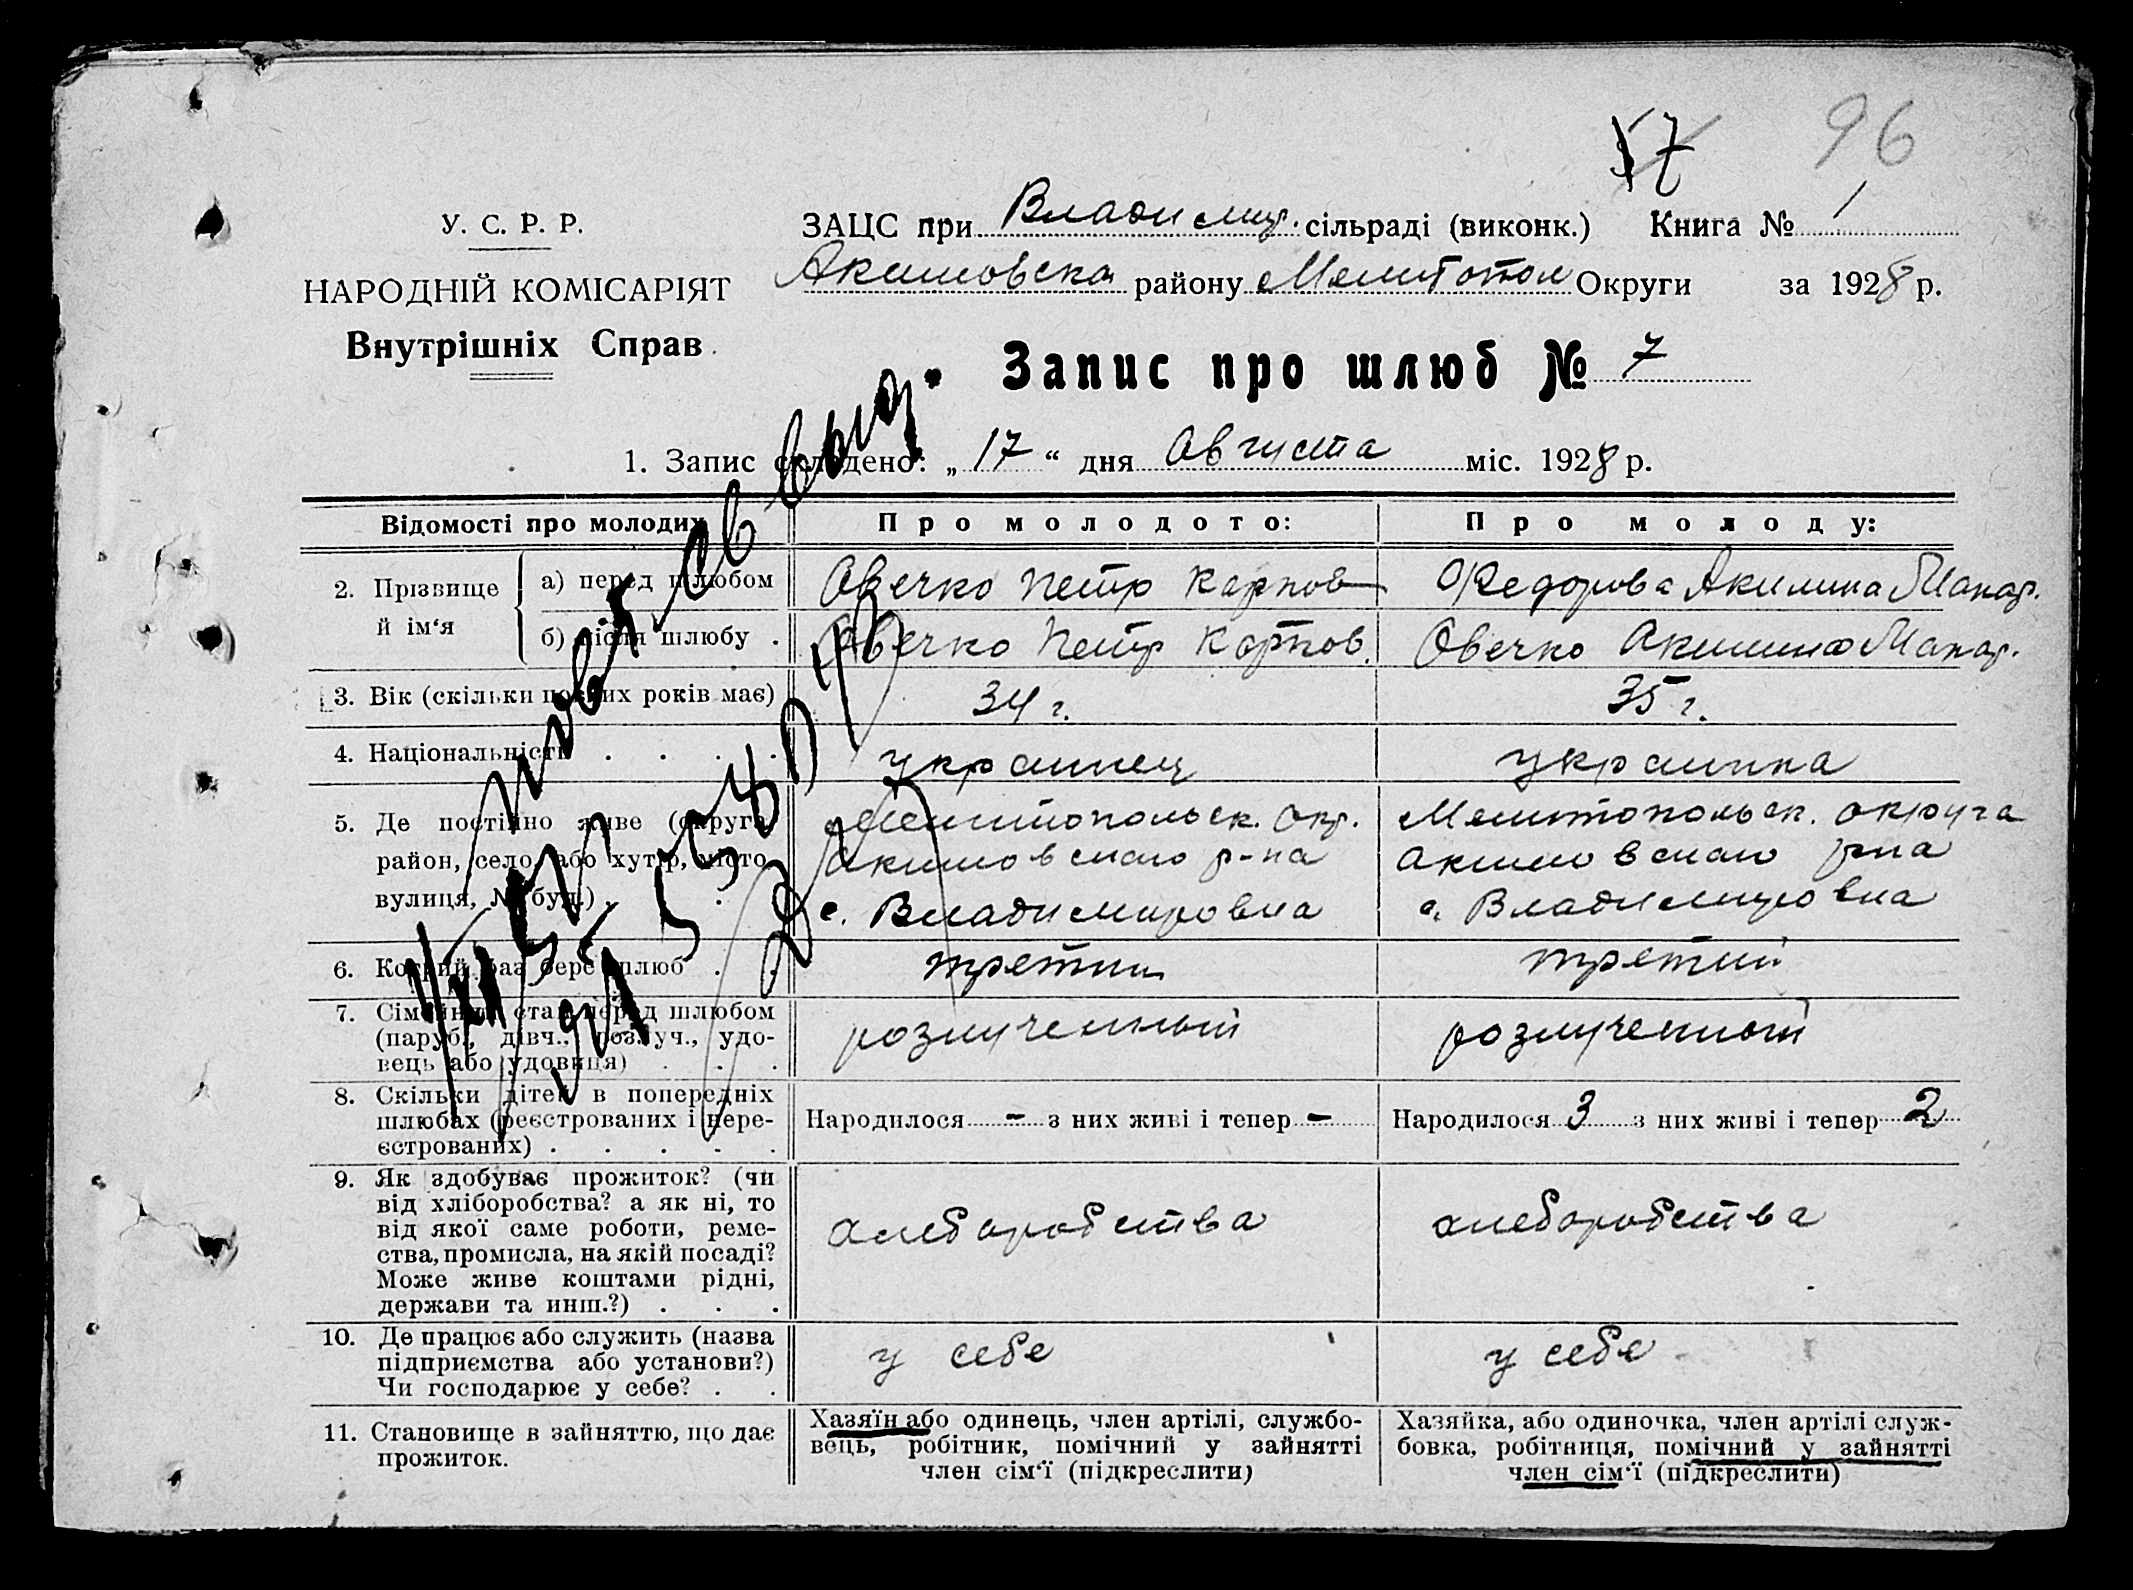 17 96
У. С. Р. Р.
НАРОДНІЙ КОМІСАРІЯТ
Внутрішніх Справ
ЗАЦС при Владимир. сільраді (виконк.) Книга № 1
Акимовска району Мелитопол Округи за 1928 р.
Запис про шлюб № 7
1. Запис складено: „17“ дня Августа міс. 1928 р.
Відомості про молодих
Про молодого:
Про молоду:
2. Прізвище й ім‘я
а) перед шлюбом
Овечко Петр Карпов
Федорова Акилина Макар.
б) після шлюбу
Овечко Петр Карпов.
Овечко Акилина Макар.
3. Вік (скільки повних років має)
34 г.
35 г.
4. Національність
украинец
украинка
5. Де постійно живе (округа,
район, село, або хутір, місто,
вулиця, № буд.)
Мелитопольск. окр.
Акимовского р-на
с. Владимировка
Мелитопольск. округа
Акимовского р-на
с. Владимировка
6. Котрий раз бере шлюб
третий
третий
7. Сімейний стан перед шлюбом
(паруб., дівч., розлуч., удо-
вець або удовиця)
розлученный
розлученный
8. Скільки дітей в попередніх
шлюбах (реєстрованих і нере-
єстрованих)
Народилося - з них живі і тепер -
Народилося 3 з них живі і тепер 2
9. Як здобуває прожиток? (чи
від хліборобства? а як ні, то
від якої саме роботи, реме-
ства, промисла, на якій посаді?
Може живе коштами рідні,
держави та инш.?)
хлеборобства
хлеборобства
10. Де працює або служить (назва
підприємства або установи?)
Чи господарює у себе?
у себе
у себе
11. Становище в зайняттю, що дає
прожиток.
Хазяїн або одинець, член артілі, службо-
вець, робітник, помічний у зайнятті
член сім‘ї (підкреслити)
Хазяйка, або одиночка, член артілі служ-
бовка, робітниця, помічний у зайнятті
член сім‘ї (підкреслити)